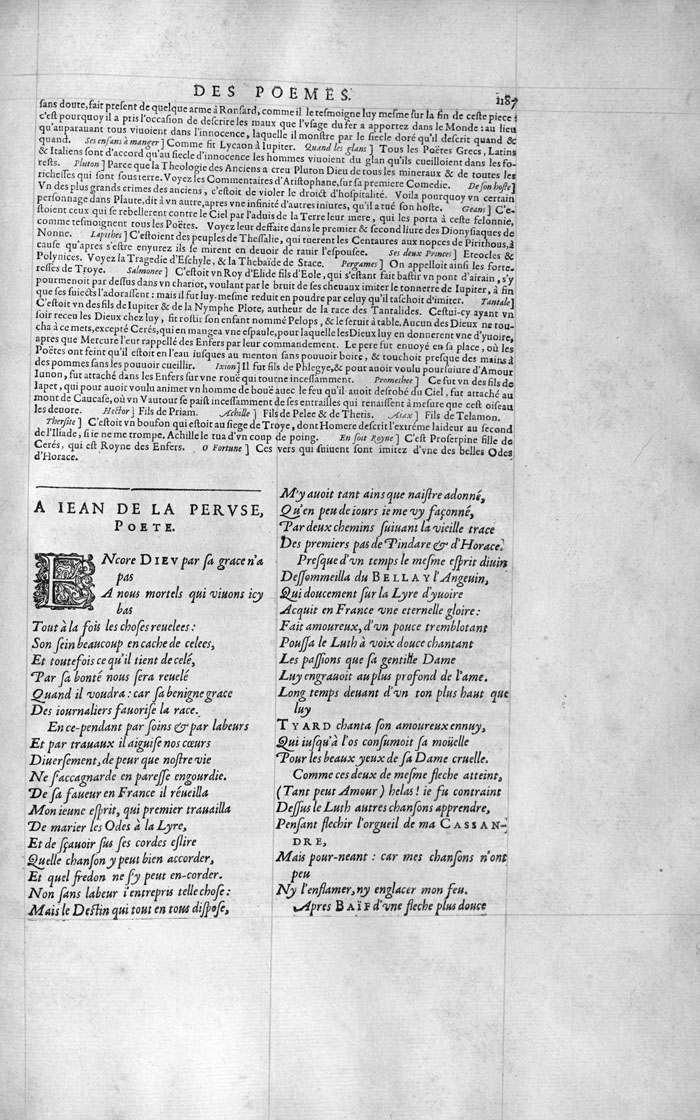 DES POEMES. 1187
sans doute, fait present de quelque arme à Ronsard, comme il le tesmoigne luy mesme sur la fin de ceste piece :
c'est pourquoy il a pris l'occasion de descrire les maux que l'vsage du fer a apportez dans le Monde : au lieu
qu'auparauant tous viuoient dans l'innocence, laquelle il monstre par le siecle doré qu'il descrit quand &
quand. Ses enfans à manger ] Comme fit Lycaon à Iupiter. Quand les glans ] Tous les Poëtes Grecs, Latins
& Italiens sont d'accord qu'au siecle d'innocence les hommes viuoient du glan qu'ils cueilloient dans les fo-
rests. Pluton ] Parce que la Theologie des Anciens a creu Pluton Dieu de tous les mineraux & de toutes les
richesses qui sont sous terre. Voyez les Commentaires d'Aristophane, sur sa premiere Comedie. De son hoste ]
Vn des plus grands crimes des anciens, c'estoit de violer le droict d'hospitalité. Voila pourquoy vn certain
personnage dans Plaute, dit à vn autre, apres vne infinité d'autres iniures, qu'il a tué son hoste. Geans ] C'e-
stoient ceux qui se rebellerent contre le Ciel par l'aduis de la Terre leur mere, qui les porta à ceste felonnie,
comme tesmoignent tous les Poëtes. Voyez leur desfaite dans le premier & second liure des Dionysiaques de
Nonne. Lapithes ] C'estoient des peuples de Thessalie, qui tuerent les Centaures aux nopces de Pirithous, à
cause qu'apres s'estre enyurez ils se mirent en deuoir de rauir l'espousee. Ses deux Princes ] Eteocles &
Polynices. Voyez la Tragedie d'Eschyle, & la Thebaïde de Stace. Pergames ] On appelloit ainsi les forte-
resses de Troye. Salmonee ] C'estoit vn Roy d'Elide fils d'Eole, qui s'estant fait bastir vn pont d'airain, s'y
pourmenoit par dessus dans vn chariot, voulant par le bruit de ses cheuaux imiter le tonnerre de Iupiter, à fin
que ses suiects l'adorassent : mais il fut luy-mesme reduit en poudre par celuy qu'il taschoit d'imiter. Tantale ]
C'estoit vn des fils de Iupiter & de la Nymphe Plote, autheur de la race des Tantalides. Cestui-cy ayant vn
soir receu les Dieux chez luy, fit rostir son enfant nommé Pelops, & le seruit à table. Aucun des Dieux ne tou-
cha à ce mets, excepté Cerés, qui en mangea vne espaule, pour laquelle les Dieux luy en donnerent vne d'yuoire,
apres que Mercure l'eur rappellé des Enfers par leur commandement. Le pere fut enuoyé en sa place, où les
Poëtes ont feint qu'il estoit en l'eau iusques au menton sans pouuoir boire, & touchoit presque des mains à
des pommes sans les pouuoir cueillir. Ixion ] Il fut fils de Phlegye, & pour auoir voulu poursuiure d'Amour
Iunon, fut attaché dans les Enfers sur vne rouë qui tourne incessamment. Promethee ] Ce fut vn des fils de
Iapet, qui pour auoir voulu animer vn homme de bouë auec le feu qu'il auoit desrobé du Ciel, fut attaché au
mont de Caucase, où vn Vautour se paist incessamment de ses entrailles qui renaissent à mesure que cest oiseau
les deuore. Hector ] Fils de Priam. Achille ] Fils de Pelee & de Thetis. Aiax ] Fils de Telamon.
Thersite ] C'estoit vn boufon qui estoit au siege de Troye, dont Homere descrit l'extréme laideur au second
de l'Iliade, si ie ne me trompe. Achille le tua d'vn coup de poing. En soit Royne ] C'est Proserpine fille de
Cerés, qui est Royne des Enfers. O Fortune ] Ces vers qui suiuent sont imitez d'vne des belles Odes
d'Horace.
A IEAN DE LA PERVSE,
POETE.
ENcore DIEV par sa grace n'a
pas
A nous mortels qui viuons icy
bas
Tout à la fois les choses reuelees :
Son sein beaucoup en cache de celees,
Et toutefois ce qu'il tient de celé,
Par sa bonté nous sera reuelé
Quand il voudra : car sa benigne grace
Des iournaliers fauorise la race.
En ce-pendant par soins & par labeurs
Et par trauaux il aiguise nos cœurs
Diuersement, de peur que nostre vie
Ne s'accagnarde en paresse engourdie.
De sa faueur en France il réueilla
Mon ieune esprit, qui premier trauailla
De marier les Odes à la Lyre,
Et de sçauoir sus ses cordes eslire
Quelle chanson y peut bien accorder,
Et quel fredon ne s'y peut en-corder.
Non sans labeur i'entrepris telle chose :
Mais le Destin qui tout en tous dispose,
M'y auoit tant ains que naistre adonné,
Qu'en peu de iours ie me vy façonné,
Par deux chemins suiuant la vieille trace
Des premiers pas de Pindare & d'Horace.
Presque d'vn temps le mesme esprit diuin
Dessommeilla du BELLAY l'Angeuin,
Qui doucement sur la Lyre d'yuoire
Acquit en France vne eternelle gloire :
Fait amoureux, d'vn pouce tremblotant
Poussa le Luth à voix douce chantant
Les passions que sa gentille Dame
Luy engrauoit au plus profond de l'ame.
Long temps deuant d'vn ton plus haut que
luy
TYARD chanta son amoureux ennuy,
Qui iusqu'à l'os consumoit sa moüelle
Pour les beaux yeux de sa Dame cruelle.
Comme ces deux de mesme fleche atteint,
(Tant peut Amour) helas ! ie fu contraint
Dessus le Luth autres chansons apprendre,
Pensant flechir l'orgueil de ma CASSAN-
DRE,
Mais pour-neant : car mes chansons n'ont
peu
Ny l'enflamer, ny englacer mon feu.
Apres BAÏF d'vne fleche plus douce